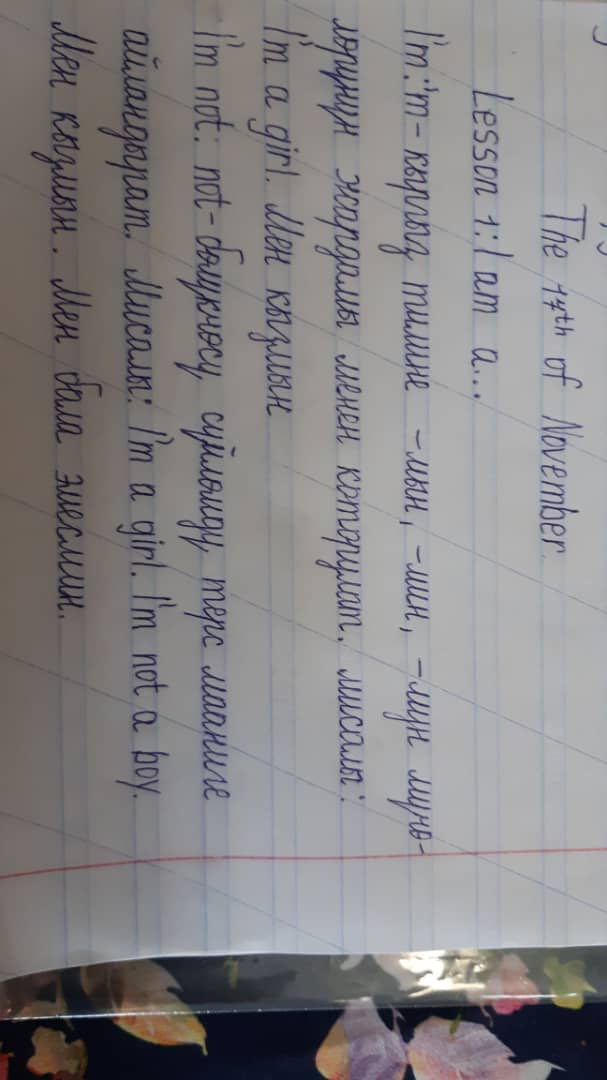 The 17th of November.
Lesson 1: I am a...
I'm: 'm - кыргыз тилине -мын, -мин, -мун муно-
мунун жардамы менен которулат. мисалы:
I'm a girl. Мен кызмын
I'm not: not - сүйломду терс мааниге
айландырат. Мисалы: I'm a girl. I'm not a boy.
Мен кызмын. Мен бала эмесмин.